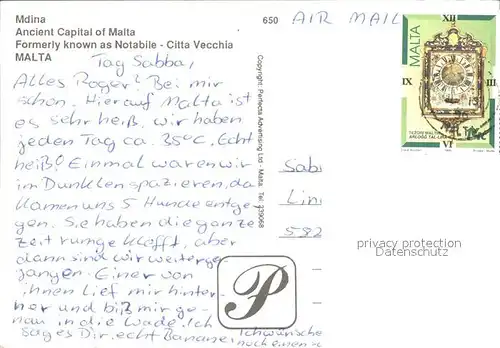 Mdina
Ancient Capital of Malta
Formerly known as Notabile - Citta Vecchia
MALTA
650
AIR MAIL
Tag Sabba,
Alles Roger? Bei mir
schon. Hier auf Malta ist
es sehr heiß. wir haben
jeden Tag ca. 35°C. Echt
heiß! Einmal waren wir
im Dunklen spazieren, da
kamen uns 5 Hunde entge-
gen. Sie haben die ganze
Zeit rumgekläfft, aber
dann sind wir weiterge-
gangen. Einer von
ihnen lief mir hinter-
her und biß mir ge-
nau in die Wade. Ich
sages Dir, echt Banane!
Ich wünsche
noch einen
Copyright: Perfecta Advertising Ltd - Malta Tel: 339068
MALTA
XII
IX
III
VI
Sab
Lin
582
privacy protection
Datenschutz
P